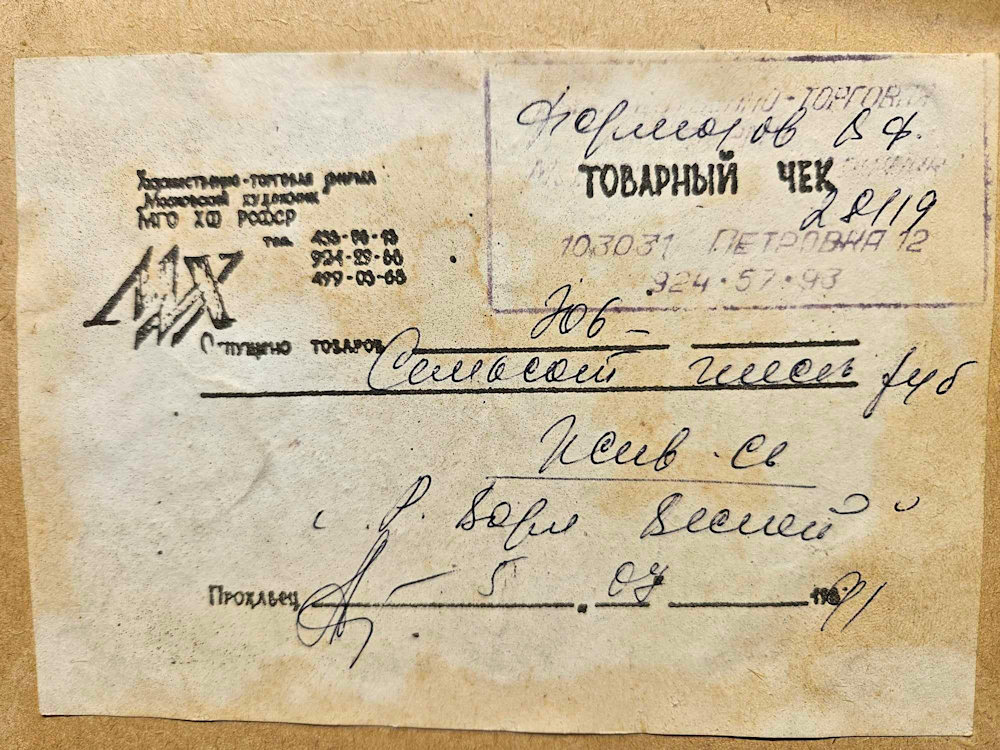 Художественно-торговая фирма
Московский художник
МГО ХФ РСФСР
тел. 499-03-68
МХ
-ТОРГОВАЯ
В Ф.
ТОВАРНЫЙ ЧЕК
28119
103031 ПЕТРОВКА 12
924·57·93
Отпущено товаров 706-
Семьсот шесть руб
Жив-сь
"Р. Воря Весной"
Продавец 5.07 1991